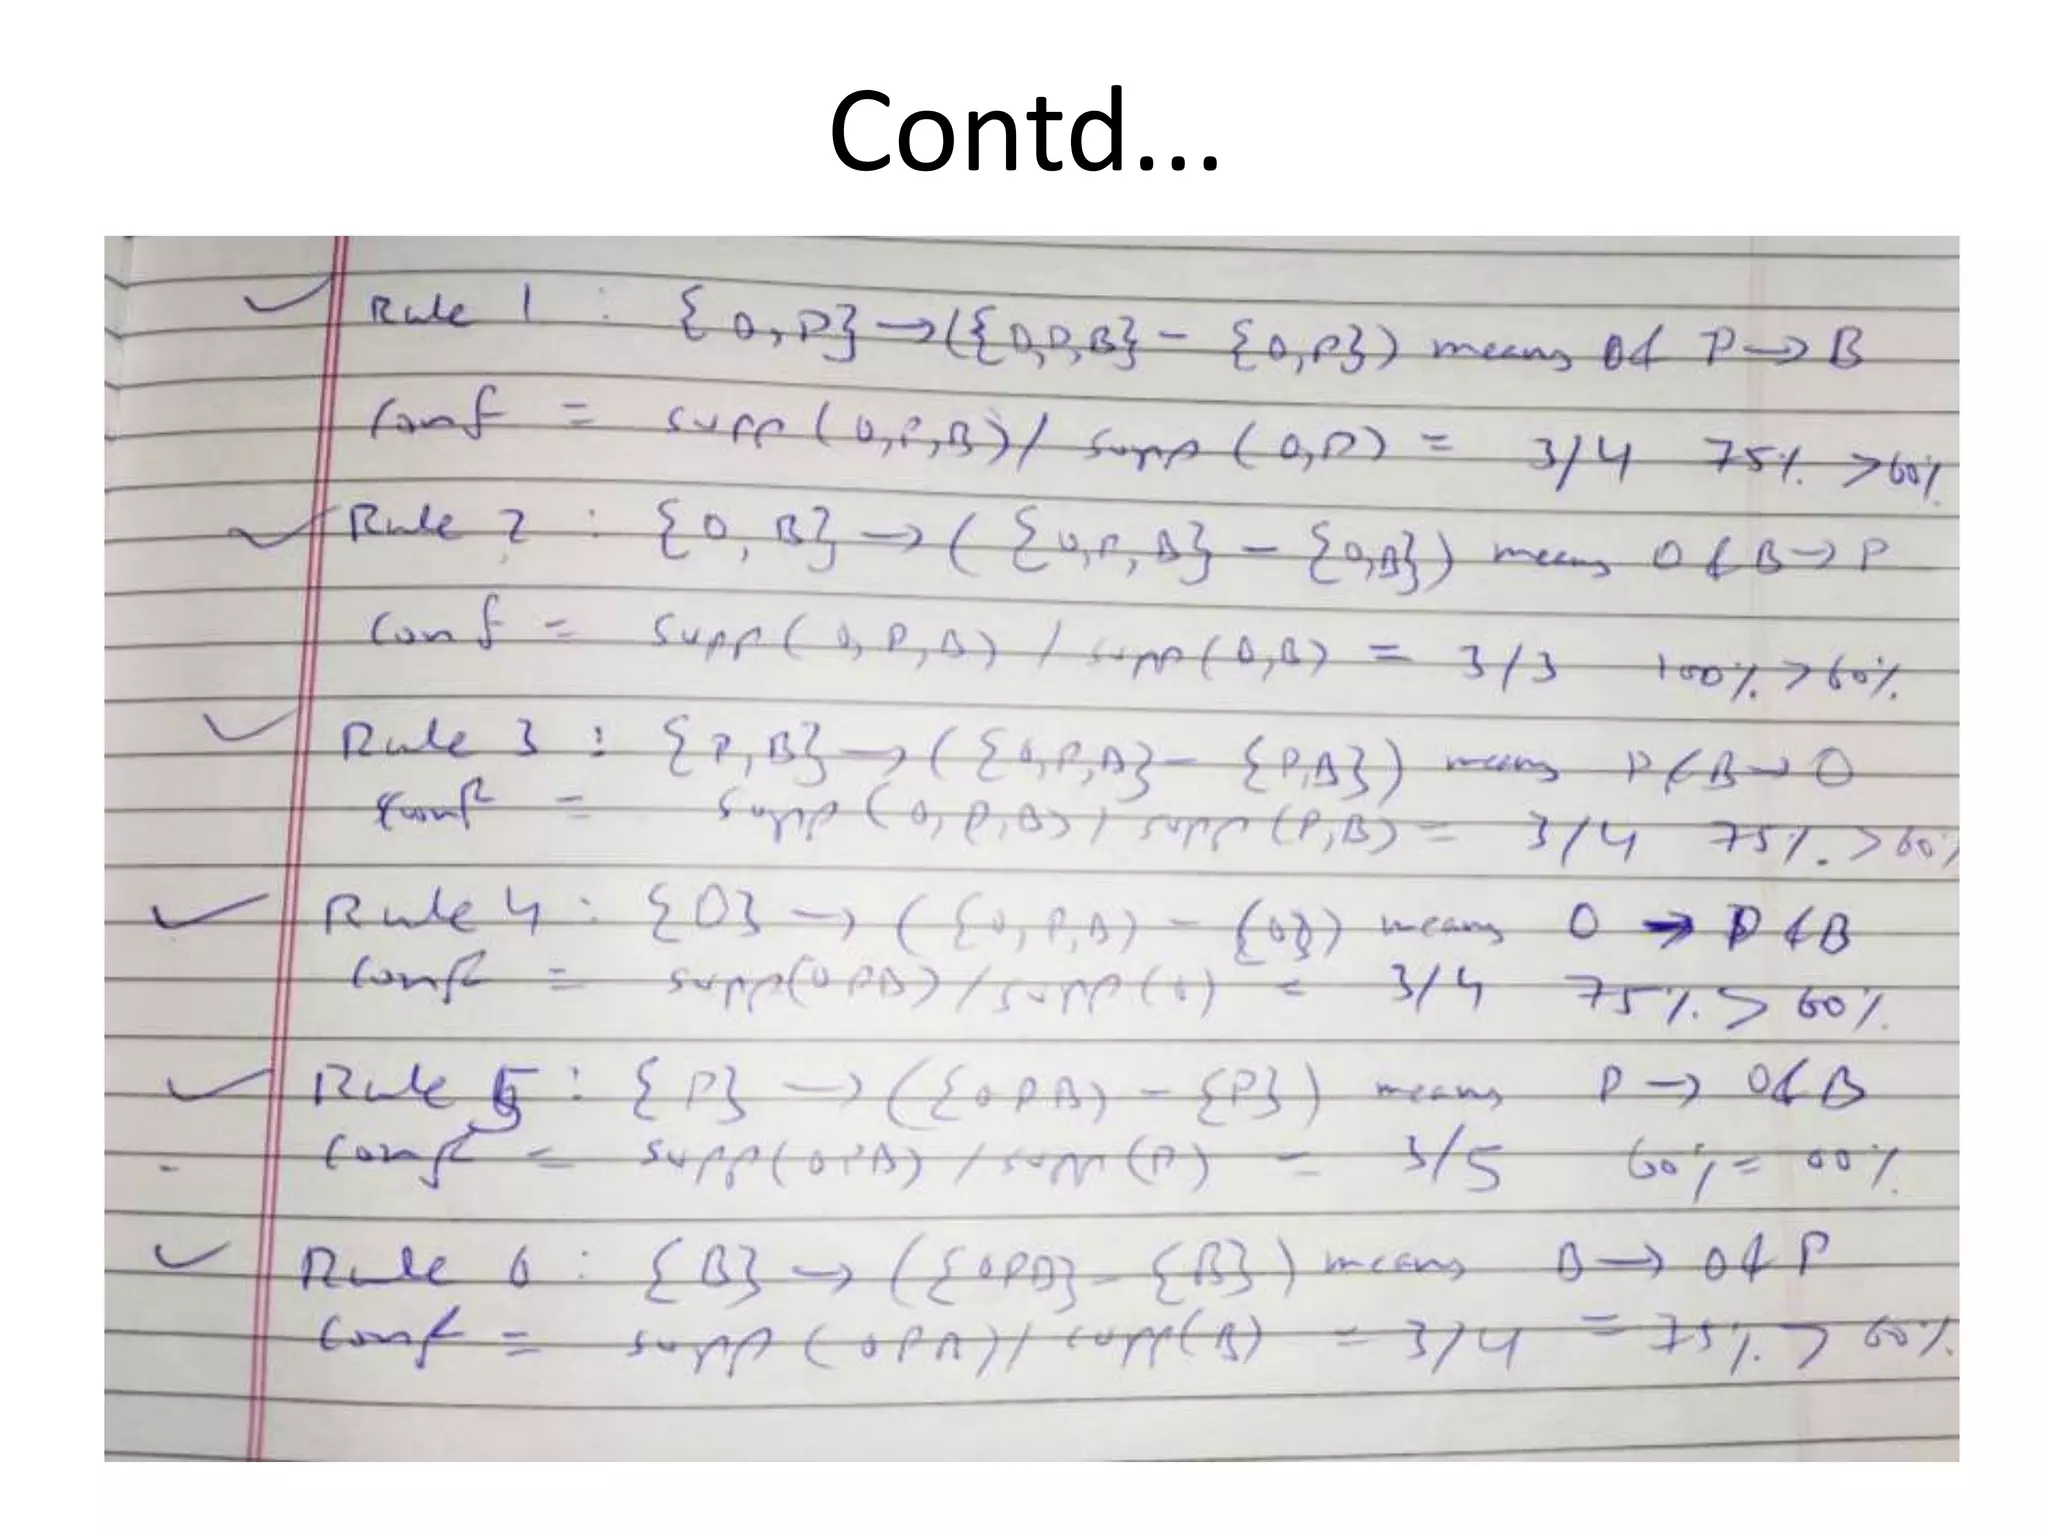 Contd...
Rule 1 : {O,P} → ({O,P,B} - {O,P}) means O & P → B
Conf = supp(O,P,B) / supp(O,P) = 3/4 75% > 60%
Rule 2 : {O,B} → ({O,P,B} - {O,B}) means O & B → P
Conf = supp(O,P,B) / supp(O,B) = 3/3 100% > 60%
Rule 3 : {P,B} → ({O,P,B} - {P,B}) means P & B → O
Conf = supp(O,P,B) / supp(P,B) = 3/4 75% > 60%
Rule 4 : {O} → ({O,P,B) - {O}) means O → P & B
Conf = supp(OPB) / supp(O) = 3/4 75% > 60%
Rule 5 : {P} → ({OPB) - {P}) means P → O & B
Conf = supp(OPB) / supp(P) = 3/5 60% = 60%
Rule 6 : {B} → ({OPB} - {B}) means B → O & P
Conf = supp(OPB) / supp(B) = 3/4 = 75% > 60%